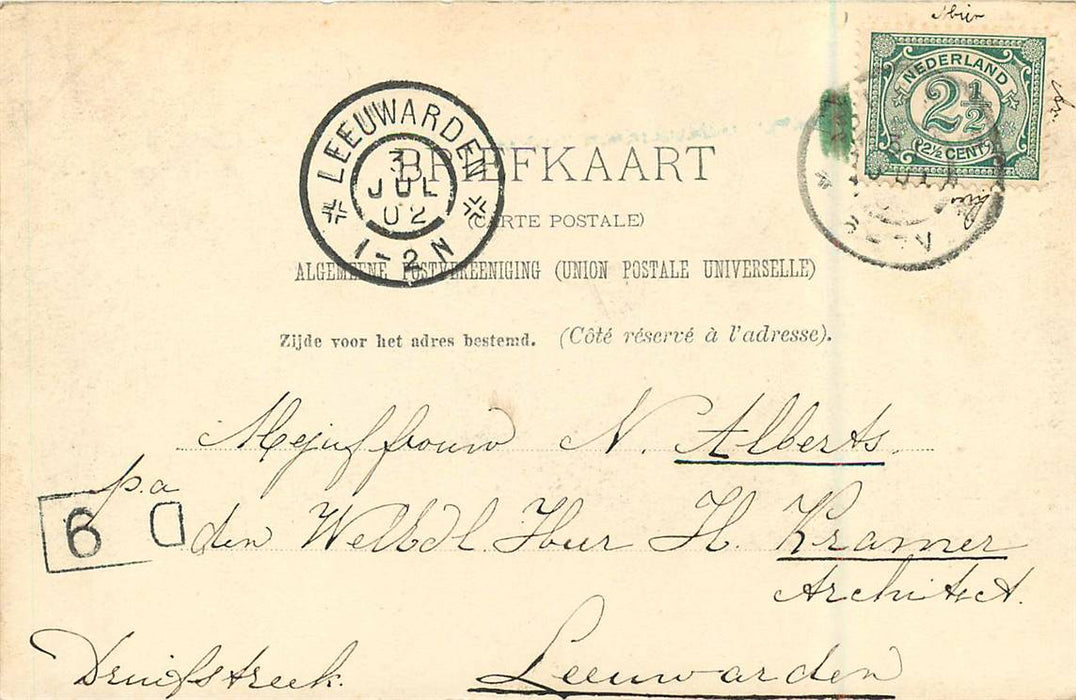 NEDERLAND
2½
(2½ CENT)
LEEUWARDEN
3 JUL 02
1-2 N
BRIEFKAART
(CARTE POSTALE)
ALGEMEENE POSTVEREENIGING (UNION POSTALE UNIVERSELLE)
Zijde voor het adres bestemd. (Côté réservé à l'adresse).
Mejuffrouw N. Alberts.
p.a
6 D
den WelEdl. Heer H. Kramer
Architect.
Druifstreek. Leeuwarden